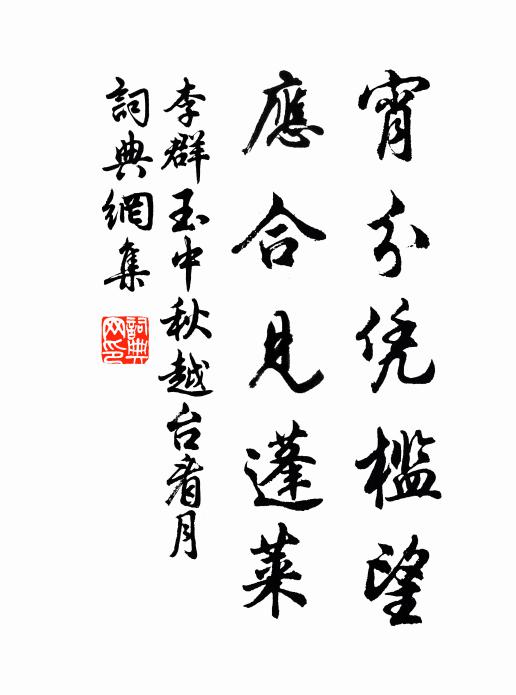 宵分凭檻望
應合見蓬萊
李群玉中秋越台看月
詞典網集
詞典網印